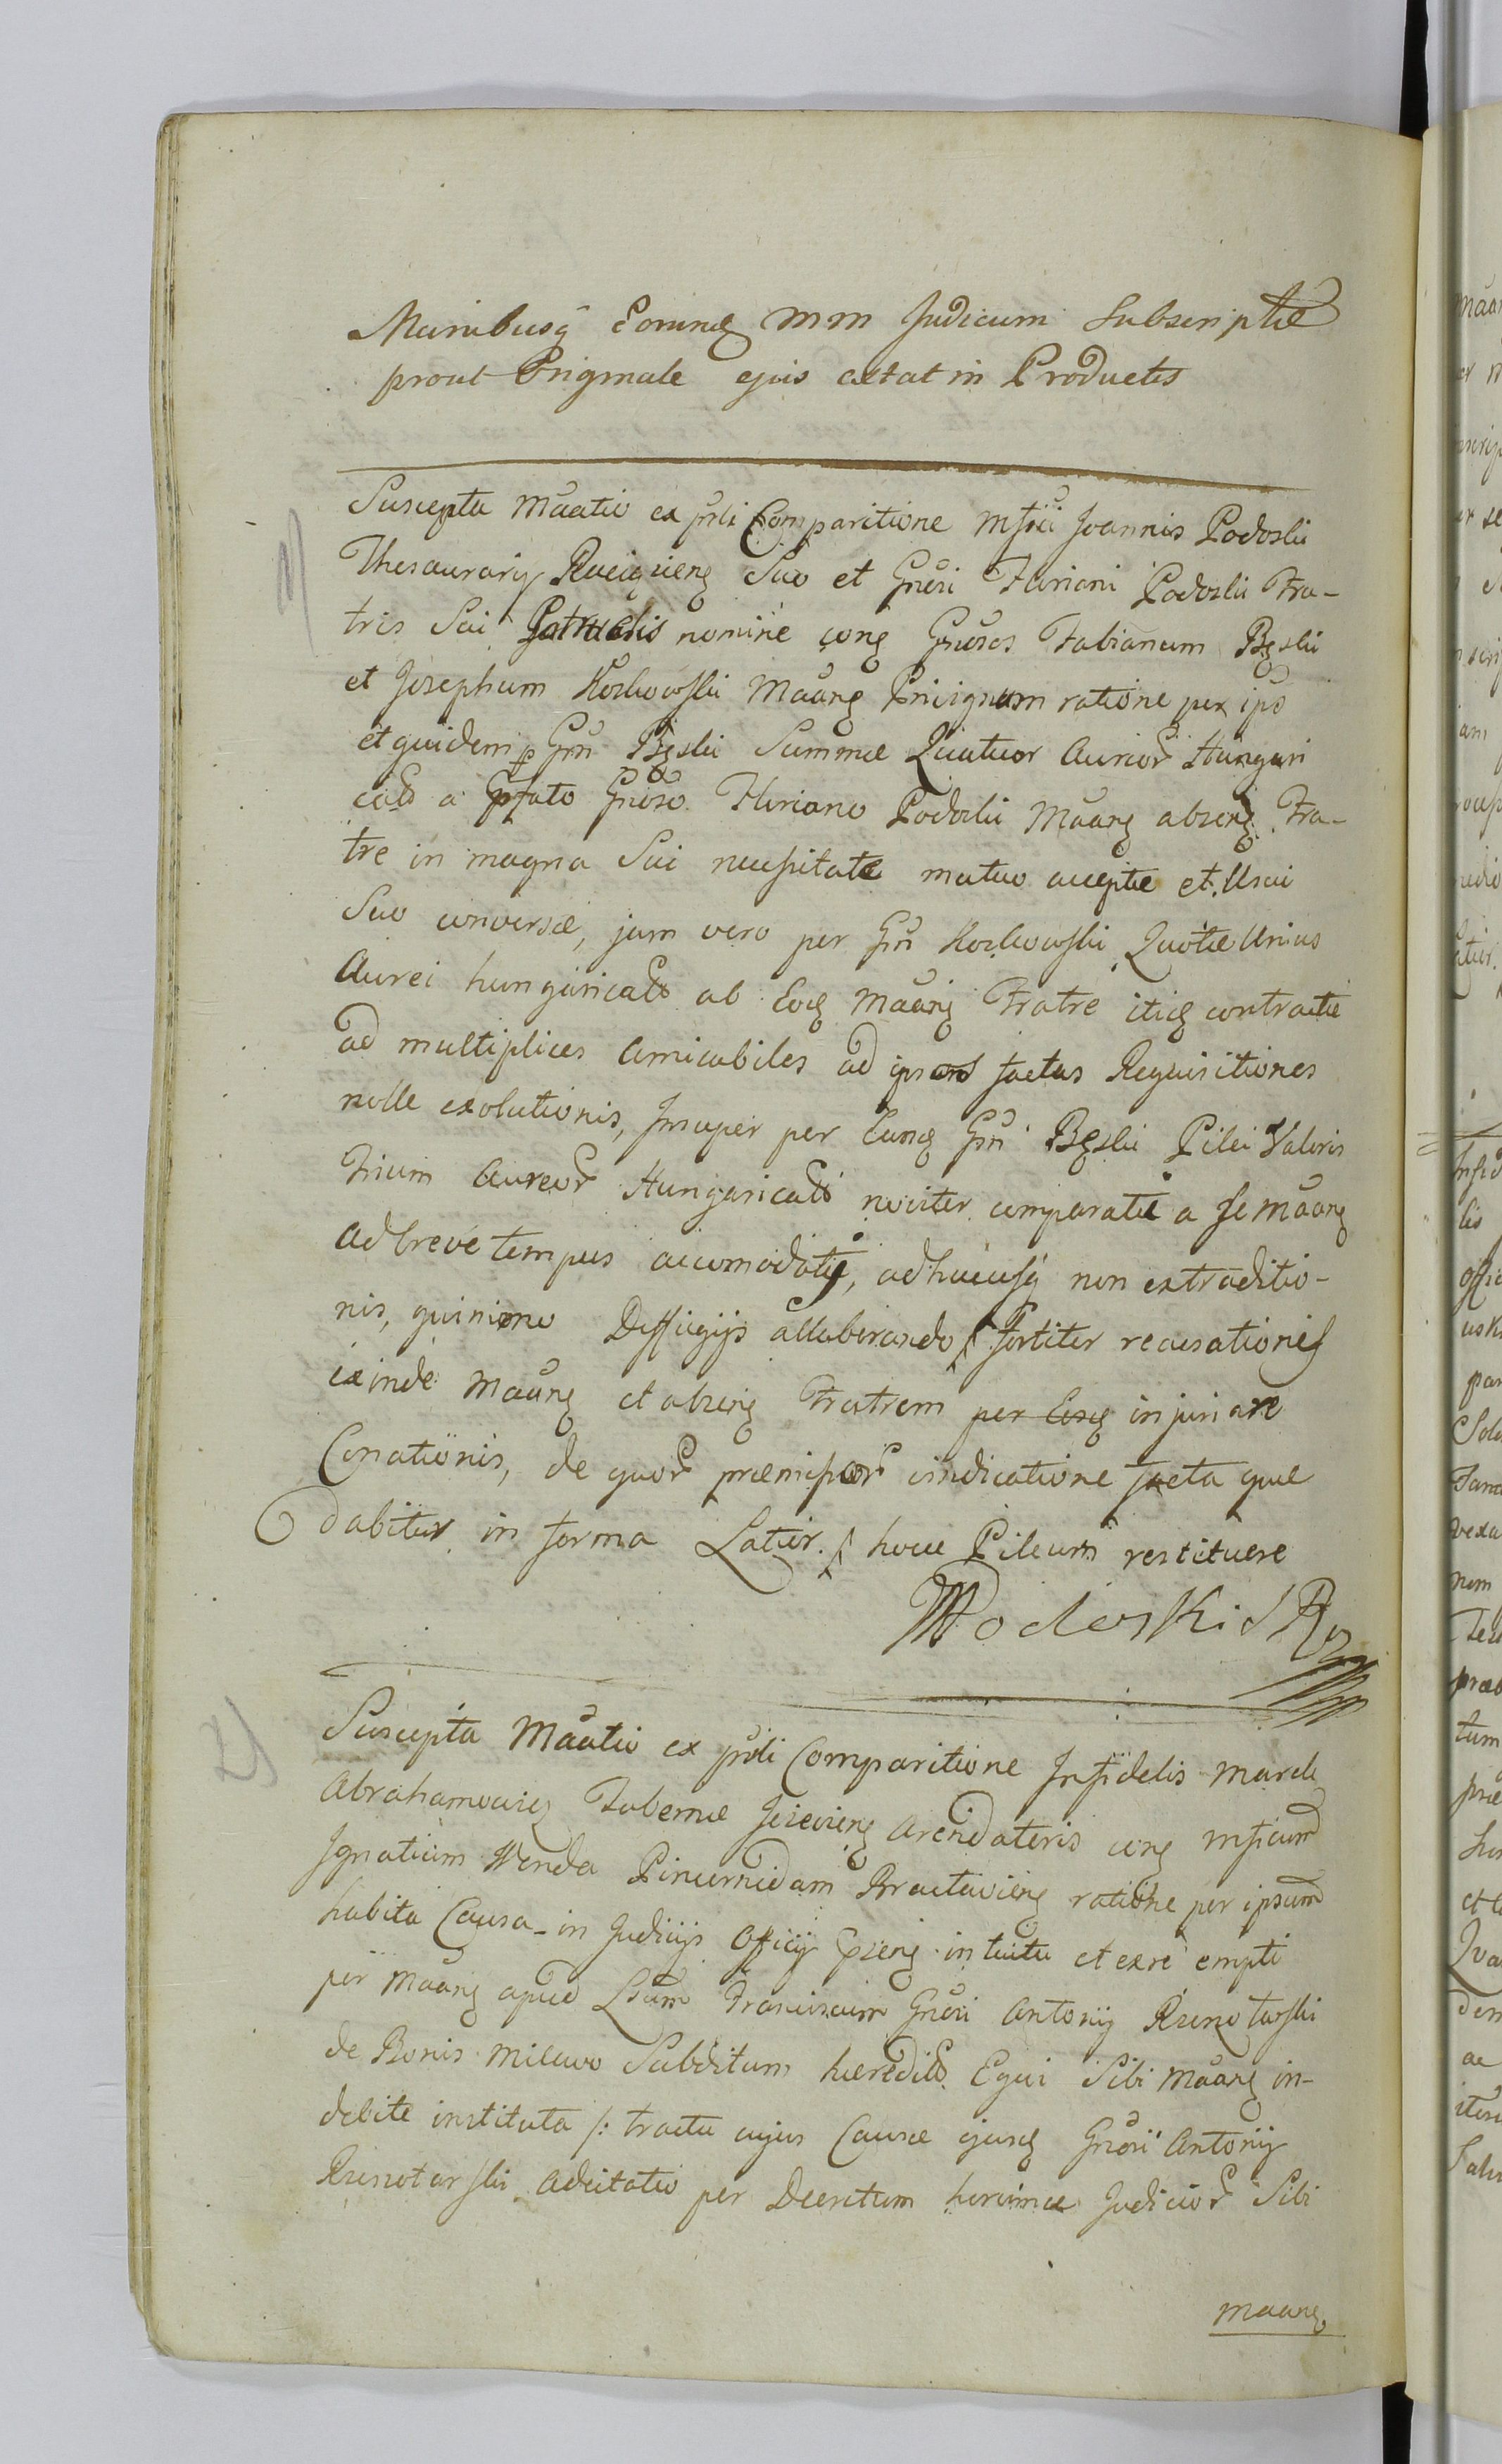 Manibusq Eorund MM Judicum Subscriptæ
prout Originale ejus extat in Productis
Suscepta Maatio ex psoli Comparitione Mfici Joannis Podoski
Thesaurarij Racigieng Suo et Gnosi Floriani Podoski Fra-
tris Sui Patruelis nomine cong Gnosos Fabianum Bęski
et Josephum Kozłowski Maang Privignum ratione per ipso
et quidem p Gsn Bęski Summæ Quatuor Aureor Hungari
calb a Pfato Gnoso Floriano Podoski Maang abseng Fra-
tre in magna Sui necessitate mutuo acceptæ et Usui
Suo conversæ, jam vero per Gsn Kozłowski Quotæ Unius
Aurei hungaricalb ab Eod Maang Fratre itid contractæ
ad multiplices amicabiles ad ipsand factas Requisitiones
nolle exolutionis, Insuper per Eund Gsn Bęski Pilei Valoris
Trium Aureor Hungaricalb noviter comparati a se Maang
ad breve tempus accomodati, adhucusq non extraditio-
nis, quinimo Deffugijs allaborando / fortiter recusationis
exinde Maang et abseng Fratrem per Eosd injuriare
Conationis, de quor præmissor vindicatione facta quæ
dabitur in forma Latior. / hocce Pileum restituere
Podoski S R
Suscepta Maatio ex psoli Comparitione Infidelis Marek
Abrahamowicz Tabernæ Jeżewieng Arendatoris cong Mficum
Ignatium Wenda Pincernidam Bractavieng ratione per ipsum
habita Causa in Judicijs Officij Pseng intuitu et ex re empti
per Maang apud Lsum Franciscum Gnosi Antonij Rzeszotarski
de Bonis Milewo Subditum hæredilb Equi Sibi Maang in-
debite instituta /: tractu cujus Causæ ejusd Gnosi Antonij
Rzeszotarski adcitatio per Decretum horumce Judicior Sibi
Maang